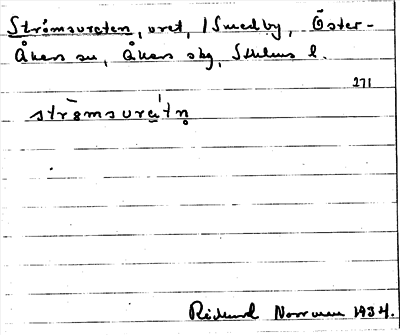 Strömsvreten, vret, 1 Smedby, Öster-
Åkers sn, Åkers skg, Sthlms l.
271
strö̀msvré̱tn̥
Rickard Norrman 1934.